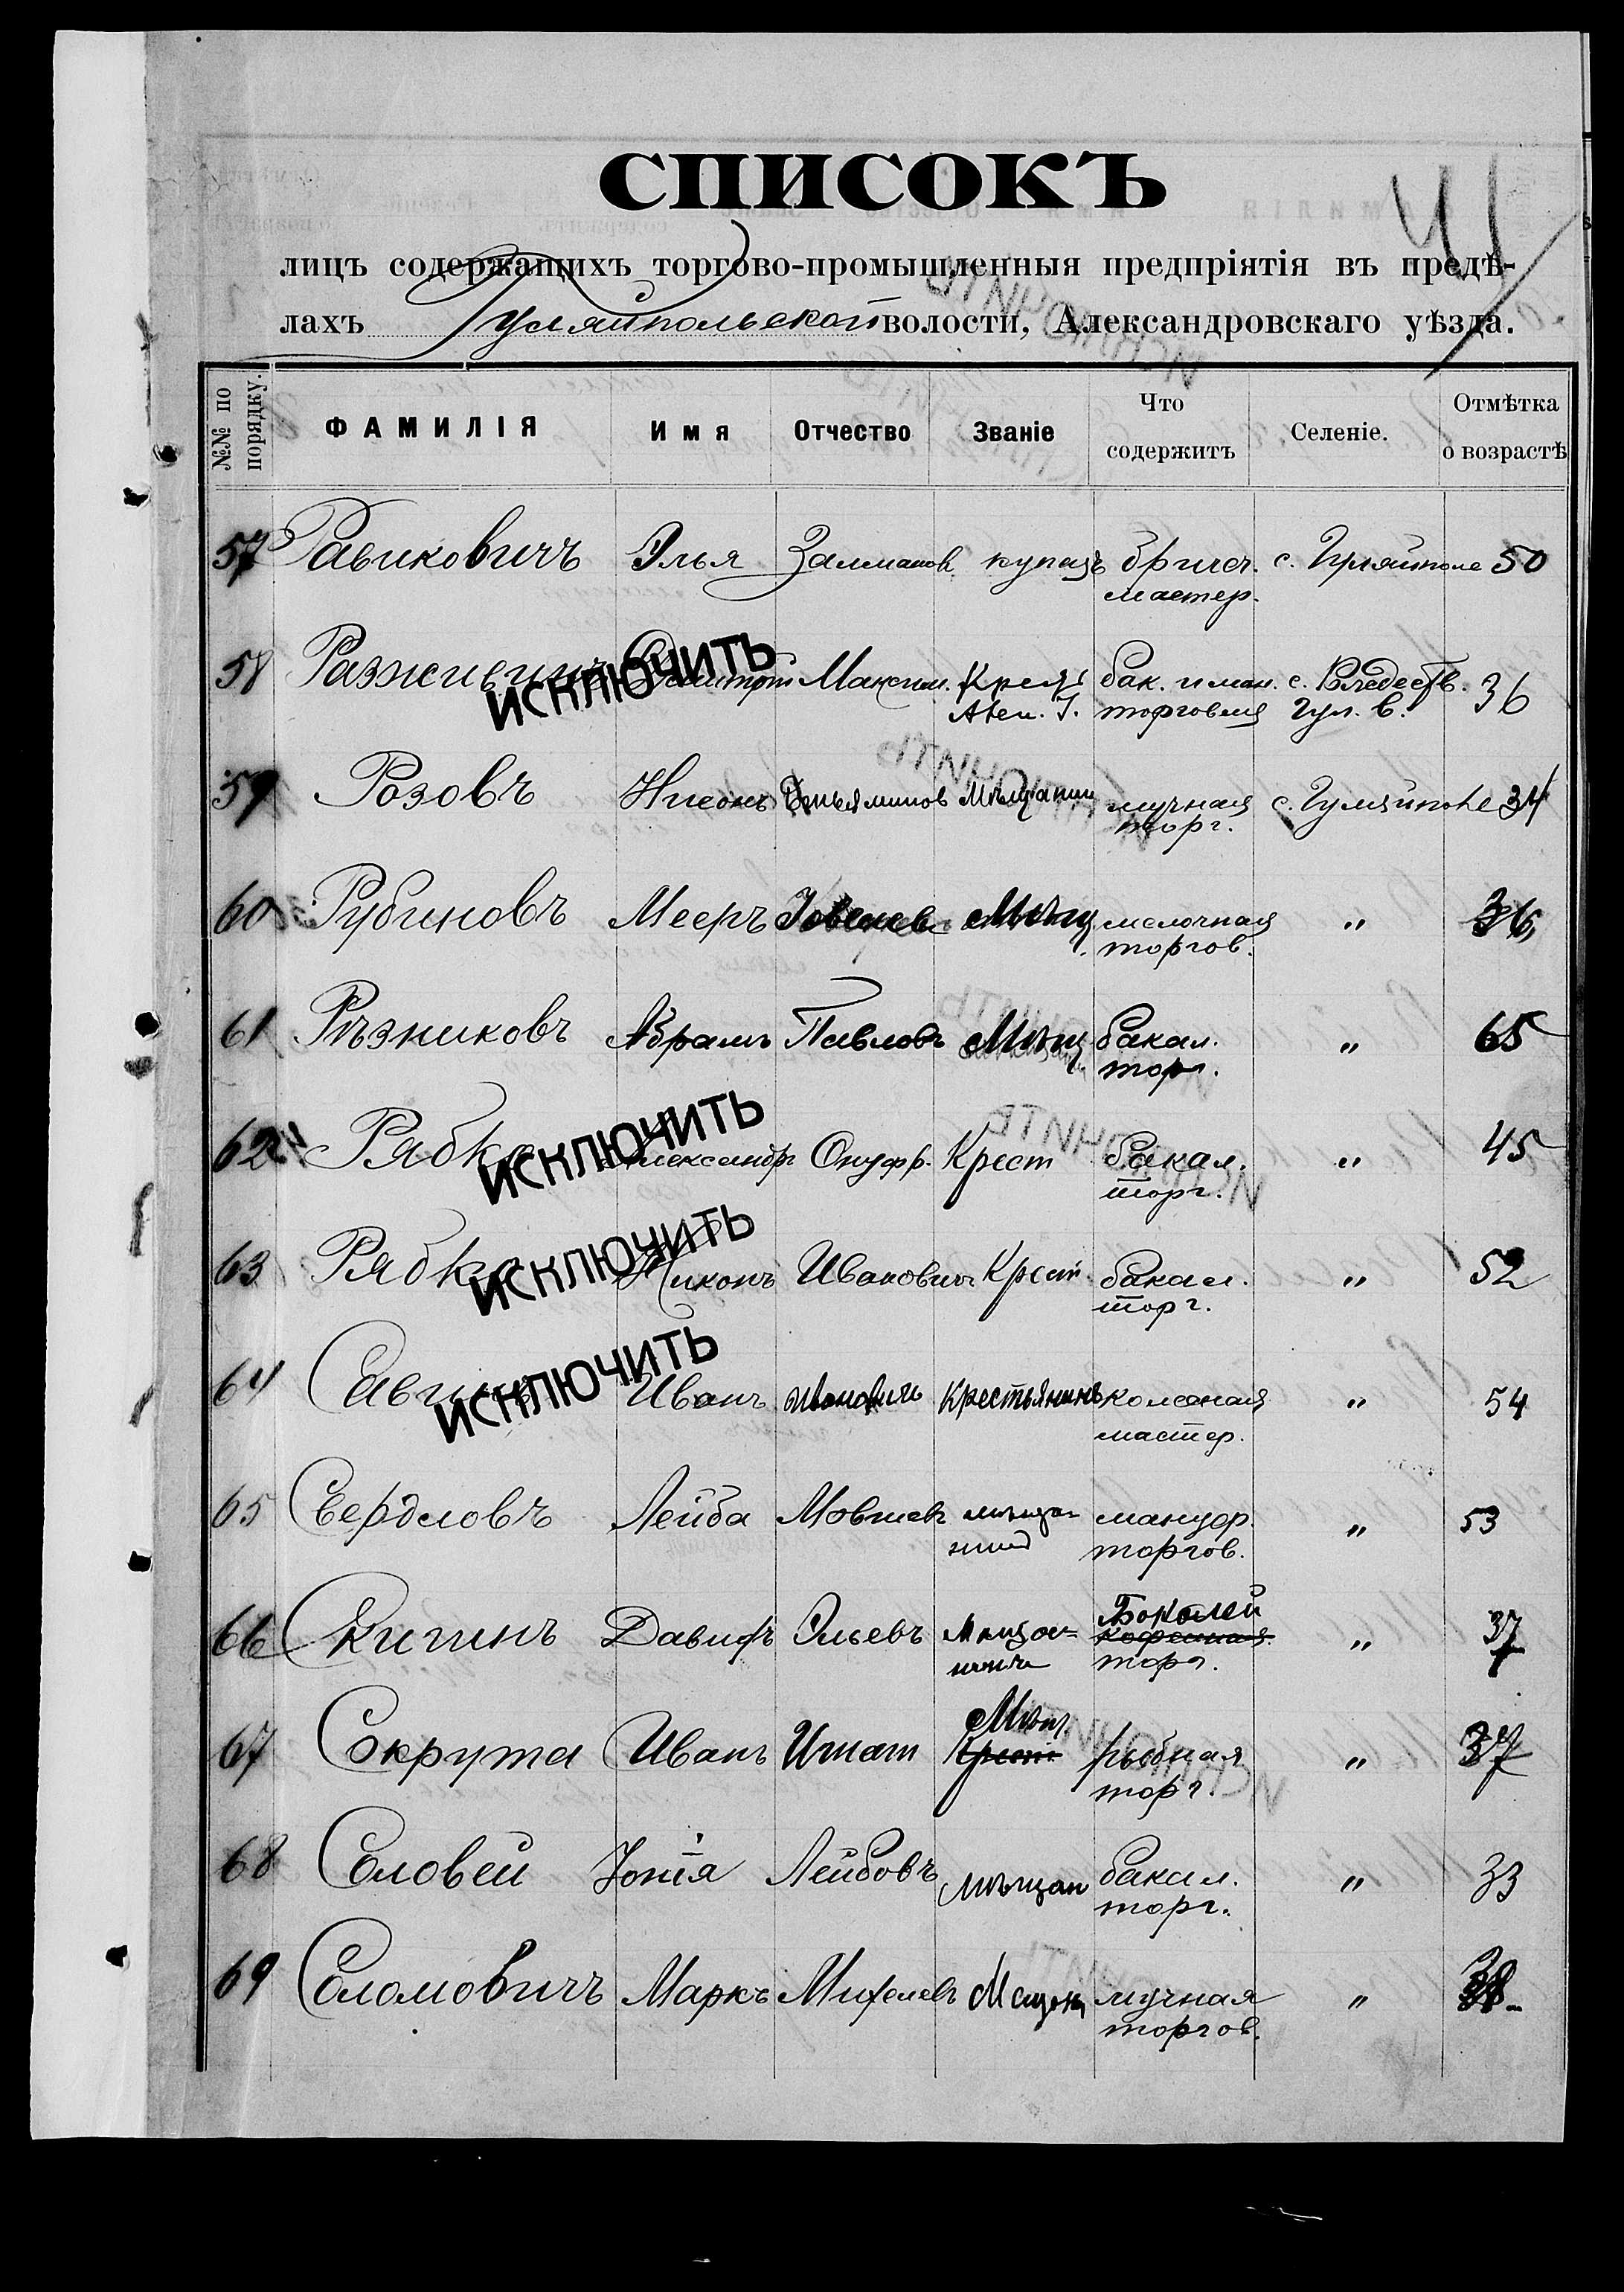 СПИСОКЪ
лицъ содержащихъ торгово-промышленныя предпріятія въ предѣ-
лахъ Гуляйпольской волости, Александровскаго уѣзда.
№№ по порядку. ФАМИЛІЯ Имя Отчество Званіе Что содержитъ Селеніе. Отмѣтка о возрастѣ
57 Равиковичъ Элья Залманов. купецъ бричеч. с. Гуляйполе 50
мастер.
58 Дмитрій Максим. Крест. бак. и ман. с. 36
торговля Гул. в.
ИСКЛЮЧИТЬ
59 Розовъ Нисонъ Веньяминов Мѣщанин мучная с. Гуляйполе 34
торг.
60 Рубиновъ Мееръ Мѣщ. мелочная „ 36
торгов.
61 Рѣзниковъ Абрамъ Павловъ Мѣщ бакал. „ 65
торг.
62 Рябко Александр Онуфр. Крест бакал. „ 45
торг.
ИСКЛЮЧИТЬ
63 Рябко Никонъ Иванович Крест. бакал. „ 52
торг.
ИСКЛЮЧИТЬ
64 Иванъ Ивановичъ Крестьянинъ колесная „ 54
мастер.
ИСКЛЮЧИТЬ
65 Свердловъ Лейба Мовшев мѣща- мануф. „ 53
нин торгов.
66 Скигинъ Давидъ Эльевъ Мѣщан- Бокалей „ 37
торг.
67 Сокрута Иванъ Игнат Мѣщ. рыбная „ 37
Крест торг.
68 Соловей Іонія Лейбовъ мѣщан бакал. „ 33
торг.
69 Соломовичъ Маркъ Михелевъ Мещан мучная „ 38
торгов.